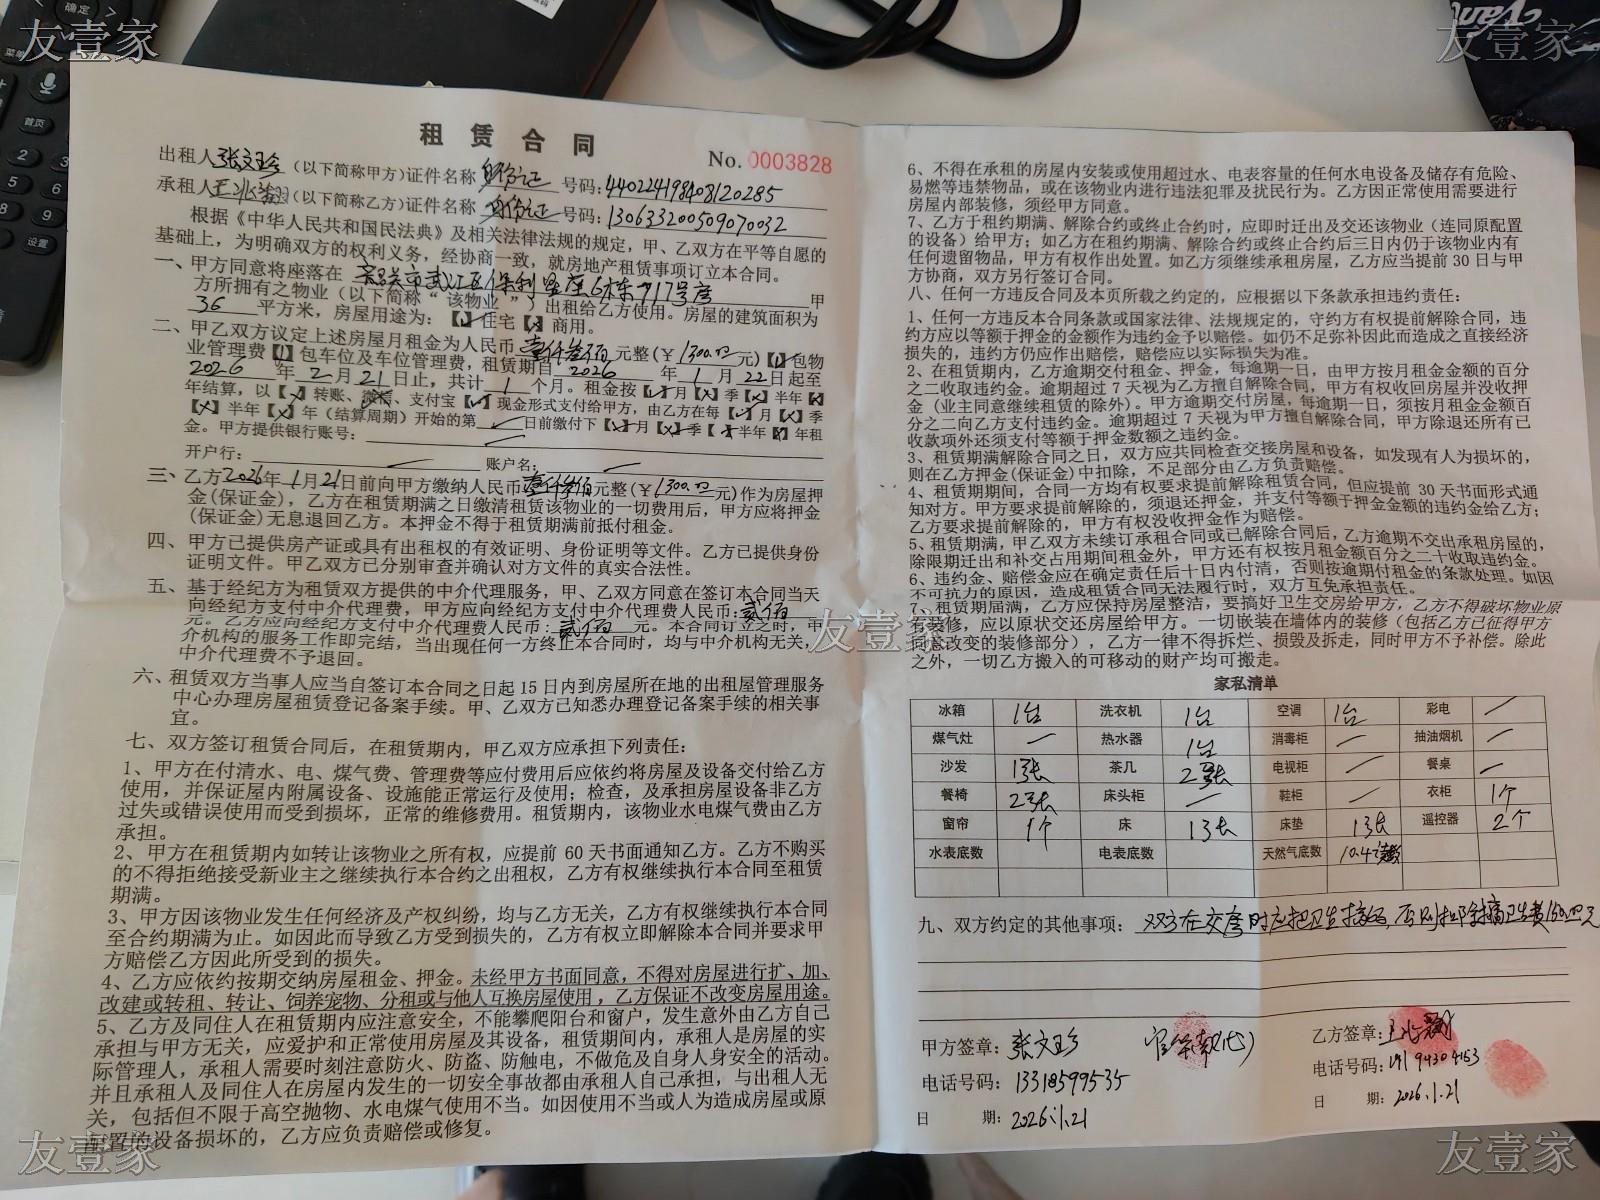 友壹家
友壹家
确定
菜单
首页
设置
2
3
5
6
8
9
租 赁 合 同
No. 0003828
出租人张文珍(以下简称甲方)证件名称 身份证 号码:440224198408120285
承租人王兆(以下简称乙方)证件名称 身份证 号码:130633200509070032
根据《中华人民共和国民法典》及相关法律法规的规定，甲、乙双方在平等自愿的
基础上，为明确双方的权利义务，经协商一致，就房地产租赁事项订立本合同。
一、甲方同意将座落在 韶关市武江区保利 6栋717号房 甲
方所拥有之物业(以下简称“该物业”)出租给乙方使用。房屋的建筑面积为
36 平方米，房屋用途为：【✓】住宅【×】商用。
二、甲乙双方议定上述房屋月租金为人民币 壹仟叁佰 元整(￥1300.00元)【】包物
业管理费【】包车位及车位管理费，租赁期自 2026 年 1 月 22 日起至
2026 年 2 月 21 日止，共计 1 个月。租金按【✓】月【×】季【×】半年【×】
年结算，以【✓】转账、微信、支付宝【✓】现金形式支付给甲方，由乙方在每【✓】月【×】季
【×】半年【×】年(结算周期)开始的第 日前缴付下【✓】月【×】季【×】半年【×】年租
金。甲方提供银行账号：
开户行： 账户名：
三、乙方2026年 1月21日前向甲方缴纳人民币 壹仟叁佰 元整(￥1300.00元)作为房屋押
金(保证金)，乙方在租赁期满之日缴清租赁该物业的一切费用后，甲方应将押金
(保证金)无息退回乙方。本押金不得于租赁期满前抵付租金。
四、甲方已提供房产证或具有出租权的有效证明、身份证明等文件。乙方已提供身份
证明文件。甲乙双方已分别审查并确认对方文件的真实合法性。
五、基于经纪方为租赁双方提供的中介代理服务，甲、乙双方同意在签订本合同当天
向经纪方支付中介代理费，甲方应向经纪方支付中介代理费人民币：贰佰
元。乙方应向经纪方支付中介代理费人民币：贰佰 元。本合同订立之时，中
介机构的服务工作即完结，当出现任何一方终止本合同时，均与中介机构无关，
中介代理费不予退回。
六、租赁双方当事人应当自签订本合同之日起 15 日内到房屋所在地的出租屋管理服务
中心办理房屋租赁登记备案手续。甲、乙双方已知悉办理登记备案手续的相关事
宜。
七、双方签订租赁合同后，在租赁期内，甲乙双方应承担下列责任：
1、甲方在付清水、电、煤气费、管理费等应付费用后应依约将房屋及设备交付给乙方
使用，并保证屋内附属设备、设施能正常运行及使用；检查，及承担房屋设备非乙方
过失或错误使用而受到损坏，正常的维修费用。租赁期内，该物业水电煤气费由乙方
承担。
2、甲方在租赁期内如转让该物业之所有权，应提前 60 天书面通知乙方。乙方不购买
的不得拒绝接受新业主之继续执行本合约之出租权，乙方有权继续执行本合同至租赁
期满。
3、甲方因该物业发生任何经济及产权纠纷，均与乙方无关，乙方有权继续执行本合同
至合约期满为止。如因此而导致乙方受到损失的，乙方有权立即解除本合同并要求甲
方赔偿乙方因此所受到的损失。
4、乙方应依约按期交纳房屋租金、押金。未经甲方书面同意，不得对房屋进行扩、加、
改建或转租、转让、饲养宠物、分租或与他人互换房屋使用，乙方保证不改变房屋用途。
5、乙方及同住人在租赁期内应注意安全，不能攀爬阳台和窗户，发生意外由乙方自己
承担与甲方无关，应爱护和正常使用房屋及其设备，租赁期间内，承租人是房屋的实
际管理人，承租人需要时刻注意防火、防盗、防触电，不做危及自身人身安全的活动。
并且承租人及同住人在房屋内发生的一切安全事故都由承租人自己承担，与出租人无
关，包括但不限于高空抛物、水电煤气使用不当。如因使用不当或人为造成房屋或原
配置的设备损坏的，乙方应负责赔偿或修复。
6、不得在承租的房屋内安装或使用超过水、电表容量的任何水电设备及储存有危险、
易燃等违禁物品，或在该物业内进行违法犯罪及扰民行为。乙方因正常使用需要进行
房屋内部装修，须经甲方同意。
7、乙方于租约期满、解除合约或终止合约时，应即时迁出及交还该物业（连同原配置
的设备）给甲方；如乙方在租约期满、解除合约或终止合约后三日内仍于该物业内有
任何遗留物品，甲方有权作出处置。如乙方须继续承租房屋，乙方应当提前 30 日与甲
方协商，双方另行签订合同。
八、任何一方违反合同及本页所载之约定的，应根据以下条款承担违约责任：
1、任何一方违反本合同条款或国家法律、法规规定的，守约方有权提前解除合同，违
约方应以等额于押金的金额作为违约金予以赔偿。如仍不足弥补因此而造成之直接经济
损失的，违约方仍应作出赔偿，赔偿应以实际损失为准。
2、在租赁期内，乙方逾期交付租金、押金，每逾期一日，由甲方按月租金金额的百分
之二收取违约金。逾期超过 7 天视为乙方擅自解除合同，甲方有权收回房屋并没收押
金（业主同意继续租赁的除外）。甲方逾期交付房屋，每逾期一日，须按月租金金额百
分之二向乙方支付违约金。逾期超过 7 天视为甲方擅自解除合同，甲方除退还所有已
收款项外还须支付等额于押金数额之违约金。
3、租赁期满解除合同之日，双方应共同检查交接房屋和设备，如发现有人为损坏的，
则在乙方押金(保证金)中扣除，不足部分由乙方负责赔偿。
4、租赁期期间，合同一方均有权要求提前解除租赁合同，但应提前 30 天书面形式通
知对方。甲方要求提前解除的，须退还押金，并支付等额于押金金额的违约金给乙方；
乙方要求提前解除的，甲方有权没收押金作为赔偿。
5、租赁期满，甲乙双方未续订承租合同或已解除合同后，乙方逾期不交出承租房屋的，
除限期迁出和补交占用期间租金外，甲方还有权按月租金额百分之二十收取违约金。
6、违约金、赔偿金应在确定责任后十日内付清，否则按逾期付租金的条款处理。如因
不可抗力的原因，造成租赁合同无法履行时，双方互免承担责任。
7、租赁期届满，乙方应保持房屋整洁，要搞好卫生交房给甲方，乙方不得破坏物业原
有装修，应以原状交还房屋给甲方。一切嵌装在墙体内的装修（包括乙方已征得甲方
同意改变的装修部分），乙方一律不得拆烂、损毁及拆走，同时甲方不予补偿。除此
之外，一切乙方搬入的可移动的财产均可搬走。
友壹家
家私清单
冰箱 1台 洗衣机 1台 空调 1台 彩电
煤气灶 热水器 1台 消毒柜 抽油烟机
沙发 1张 茶几 2张 电视柜 餐桌
餐椅 2张 床头柜 鞋柜 衣柜 1个
窗帘 1个 床 1张 床垫 1张 遥控器 2个
水表底数 电表底数 天然气底数 10.4
九、双方约定的其他事项：双方在交房时应把卫生搞好，否则扣除搞卫生费150.00元
甲方签章：张文珍 (代)
电话号码：13318599535
日 期：2026.1.21
乙方签章：王兆
电话号码：191 9430 4153
日 期：2026.1.21
友壹家
友壹家